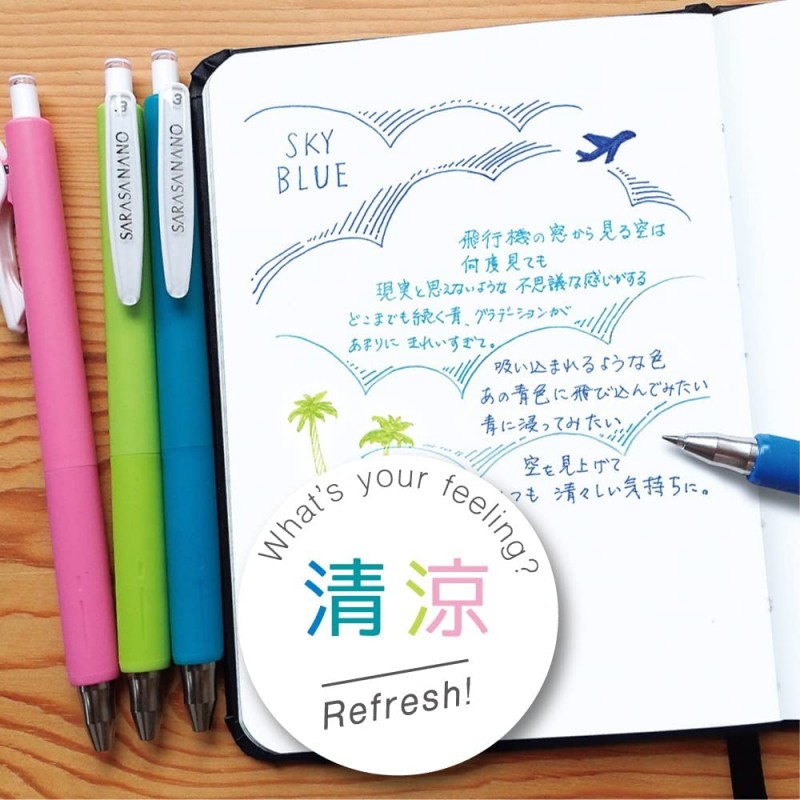 SARASA NANO
.3
SARASA NANO
.3
SKY
BLUE
飛行機の窓から見る空は
何度見ても
現実と思えないような 不思議な感じがする
どこまでも続く青、グラデーションが
あまりに きれいすぎて。
吸い込まれるような色
あの青色に飛び込んでみたい
青に浸ってみたい
空を見上げて
つも 清々しい気持ちに。
What's your feeling?
清涼
Refresh!